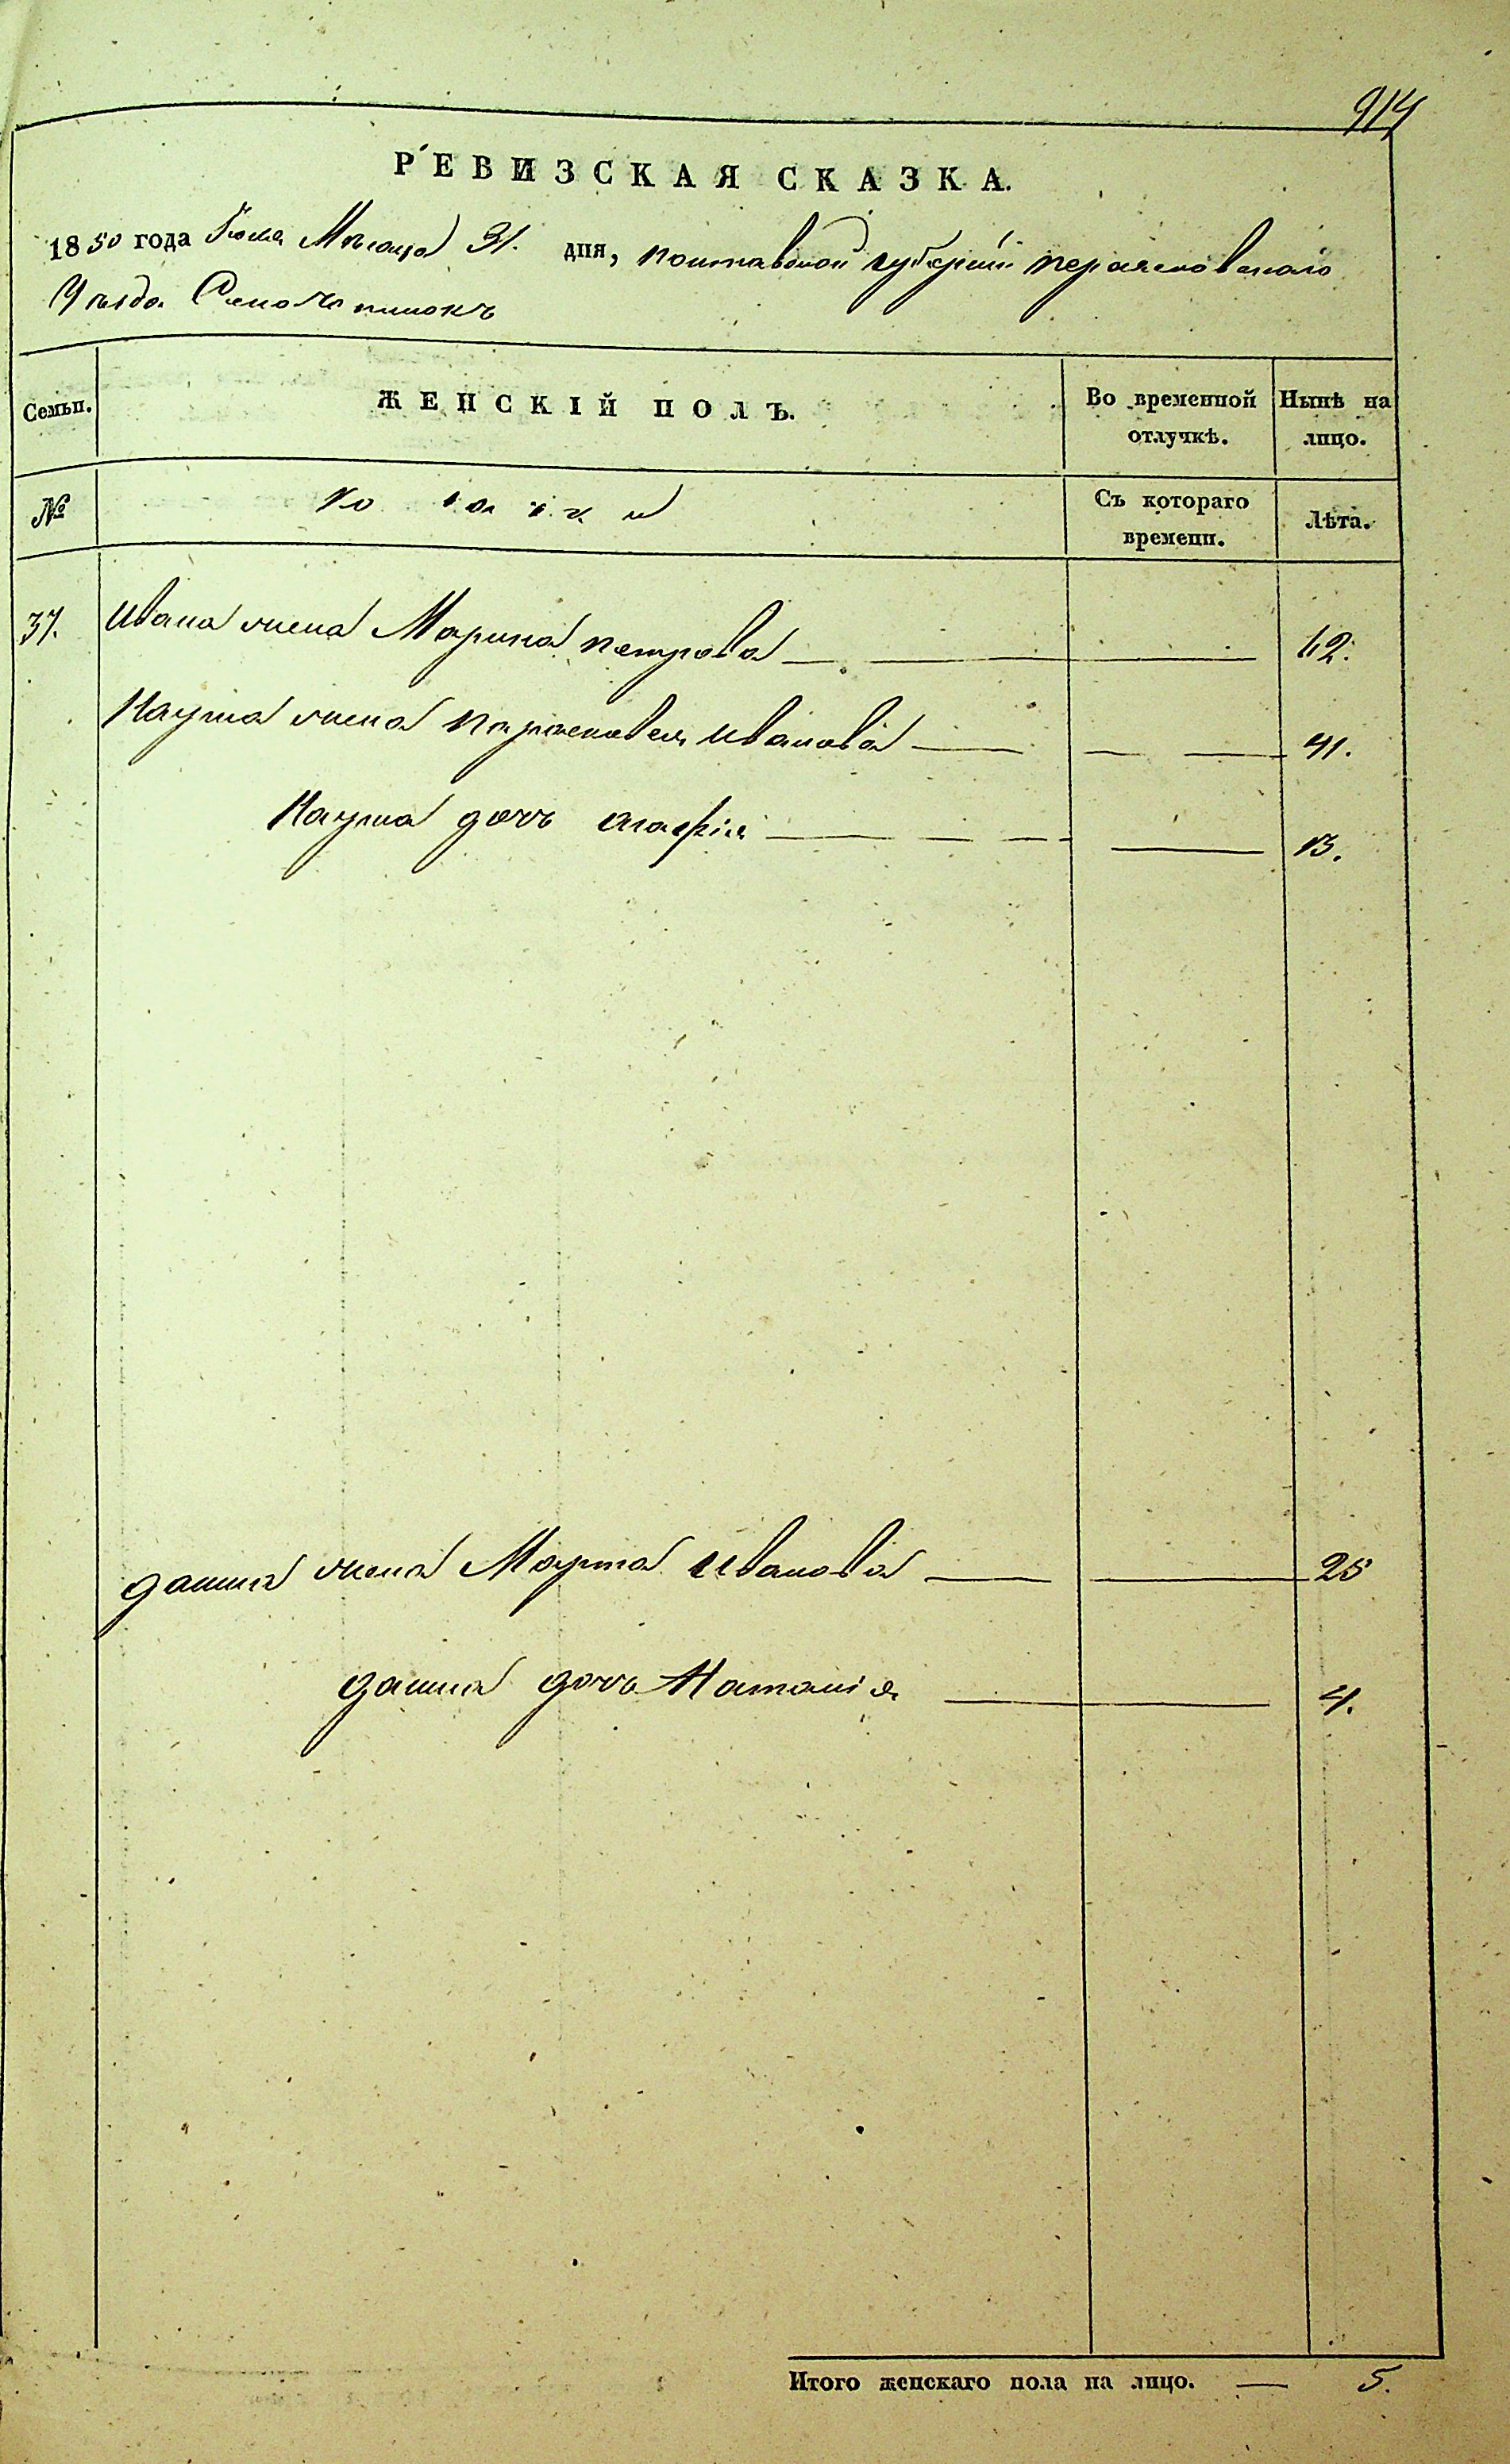 914
РЕВИЗСКАЯ СКАЗКА.
1850 года Июля Месяца 31. дня, полтавской губернии переяславского
Уезда Села
Семьи. ЖЕНСКІЙ ПОЛЪ. Во временной отлучкѣ. Нынѣ на лицо.
№ козачки Съ котораго времени. Лѣта.
37. Ивана жена Марина петрова 62.
Наума жена параскевея иванова 41.
Наума дочь агафія 13.
данила жена Марфа иванова 25
данила дочь Наталія 4.
Итого женскаго пола на лицо. — 5.